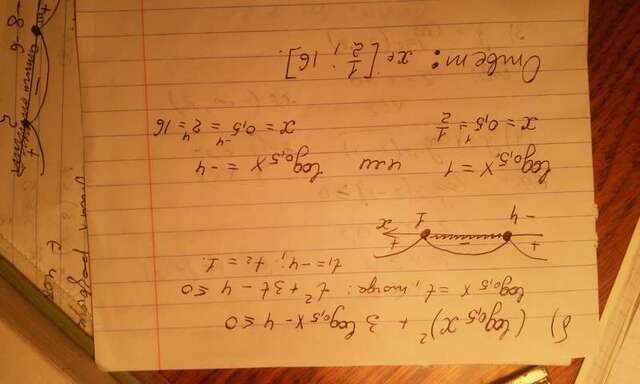 б) (log₀,₅ x)² + 3 log₀,₅ x - 4 ≤ 0
log₀,₅ x = t, тогда: t² + 3t - 4 ≤ 0
t₁ = -4; t₂ = 1.
+ - +
-4 1 x
log₀,₅ x = 1 или log₀,₅ x = -4
x = 0,5¹ = 1/2 x = 0,5⁻⁴ = 2⁴ = 16
Ответ: x ∈ [1/2; 16].